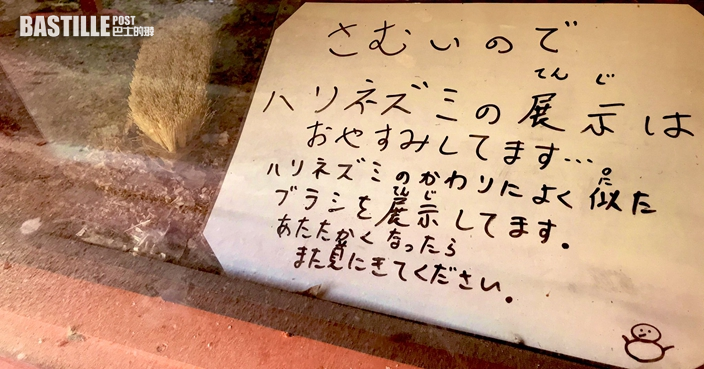 BASTILLE POST
巴士的報
さむいので
てんじ
ハリネズミの展示は
おやすみしてます…
ハリネズミのかわりによく似た
てんじ
ブラシを展示してます。
あたたかくなったら
また見にきてください。